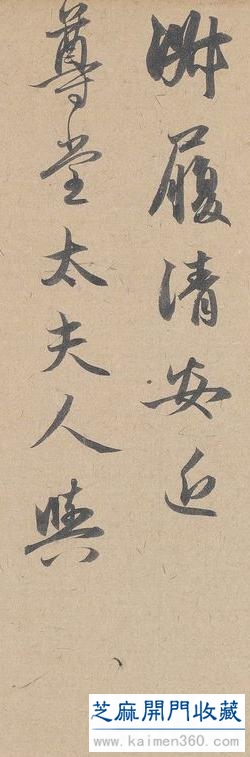 履清安近
尊堂太夫人與
芝麻開門收藏
www.kaimen360.com